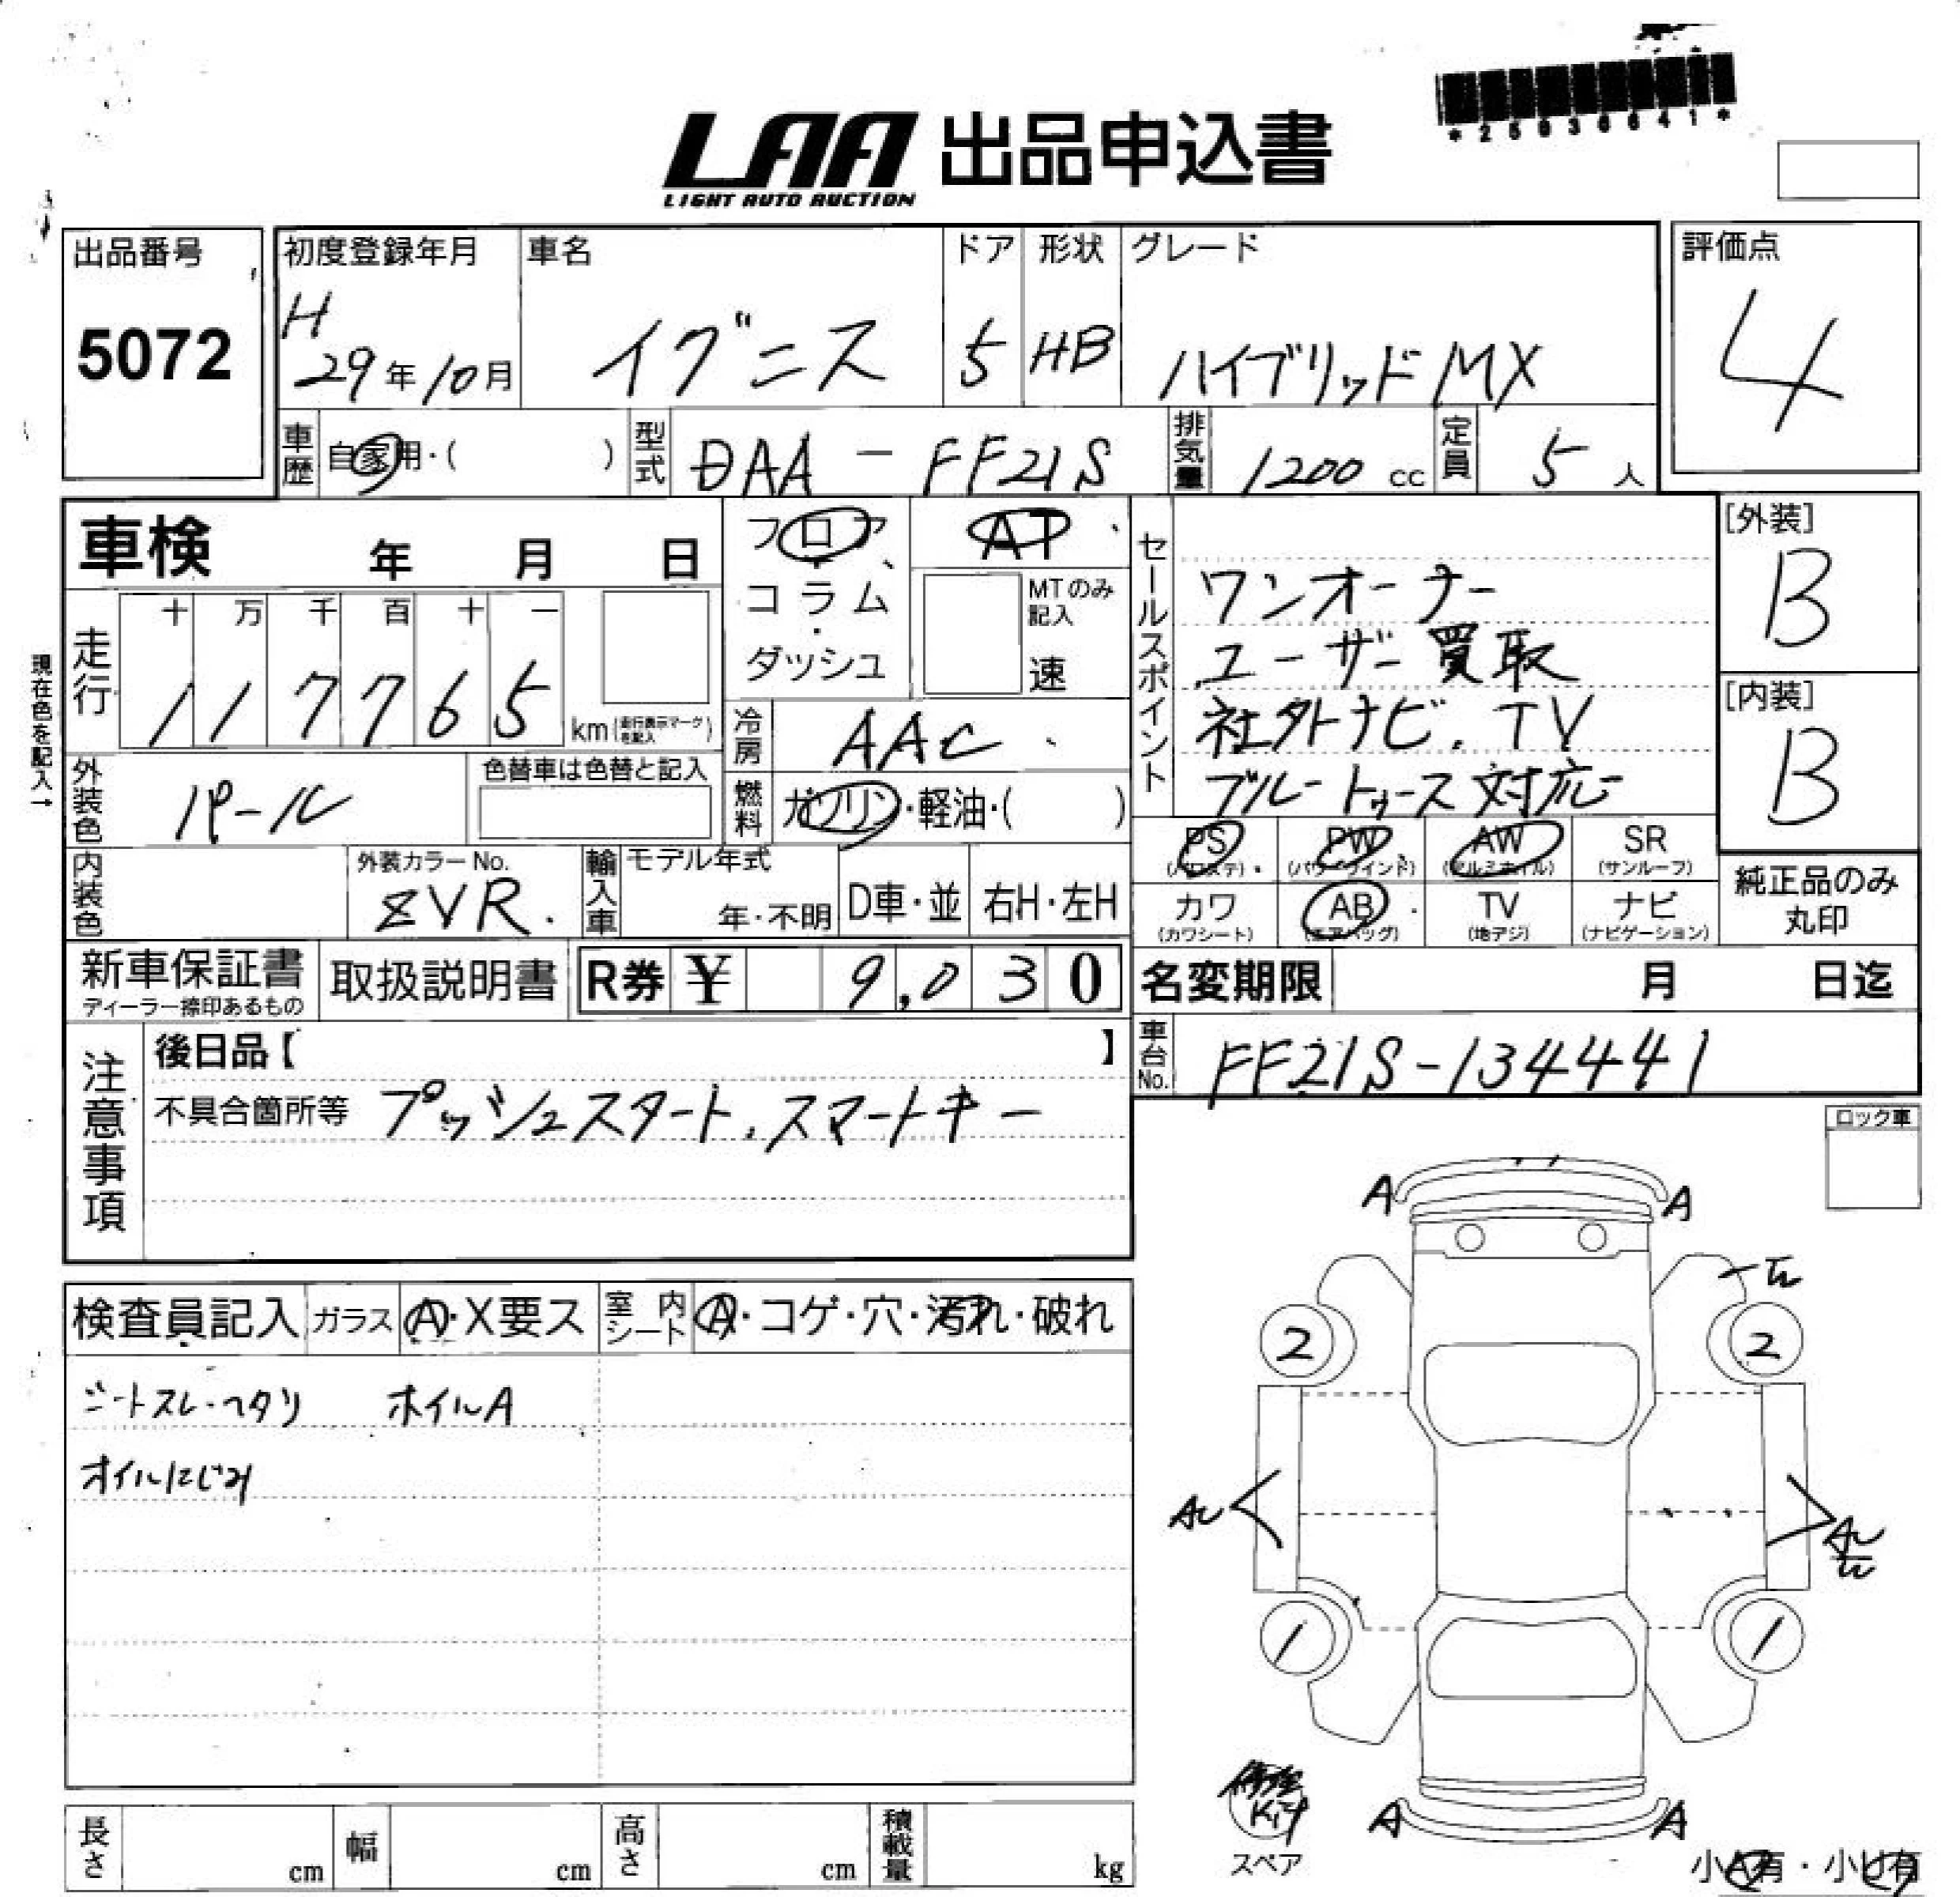 *25030641*
LAA 出品申込書
LIGHT AUTO AUCTION
出品番号
5072
初度登録年月
H
29年10月
車名
イグニス
ドア
5
形状
HB
グレード
ハイブリッドMX
評価点
4
車歴
自家用・( )
型式
DAA-FF21S
排気量
1200 cc
定員
5人
車検 年 月 日
フロア
・
コラム
・
ダッシュ
AT
MTのみ記入
速
走行
十 万 千 百 十 一
1 1 7 7 6 5
km(走行表示マークを記入)
現在色を記入→
冷房
AAC
セールスポイント
ワンオーナー
ユーザー買取
社外ナビ.TV
ブルートゥース対応
[外装]
B
[内装]
B
外装色
パール
色替車は色替と記入
燃料
ガソリン・軽油・( )
内装色
外装カラーNo.
ZVR.
輸入車
モデル年式
年・不明
D車・並
右H・左H
PS
(パワステ)
PW
(パワーウインド)
AW
(アルミホイル)
SR
(サンルーフ)
カワ
(カワシート)
AB
(エアバッグ)
TV
(地デジ)
ナビ
(ナビゲーション)
純正品のみ
丸印
新車保証書
ディーラー捺印あるもの
取扱説明書
R券 ¥ 9,030
名変期限 月 日迄
車台No.
FF21S-134441
注意事項
後日品【 】
不具合箇所等 プッシュスタート.スマートキー
ロック車
検査員記入
ガラス
A・X要ス
室内シート
A・コゲ・穴・汚れ・破れ
シートスレ・ヘタリ ホイルA
オイルにじみ
A A
2 2
AU
AU
1 1
A A
スペア
小A有・小U有
長さ cm
幅 cm
高さ cm
積載量 kg